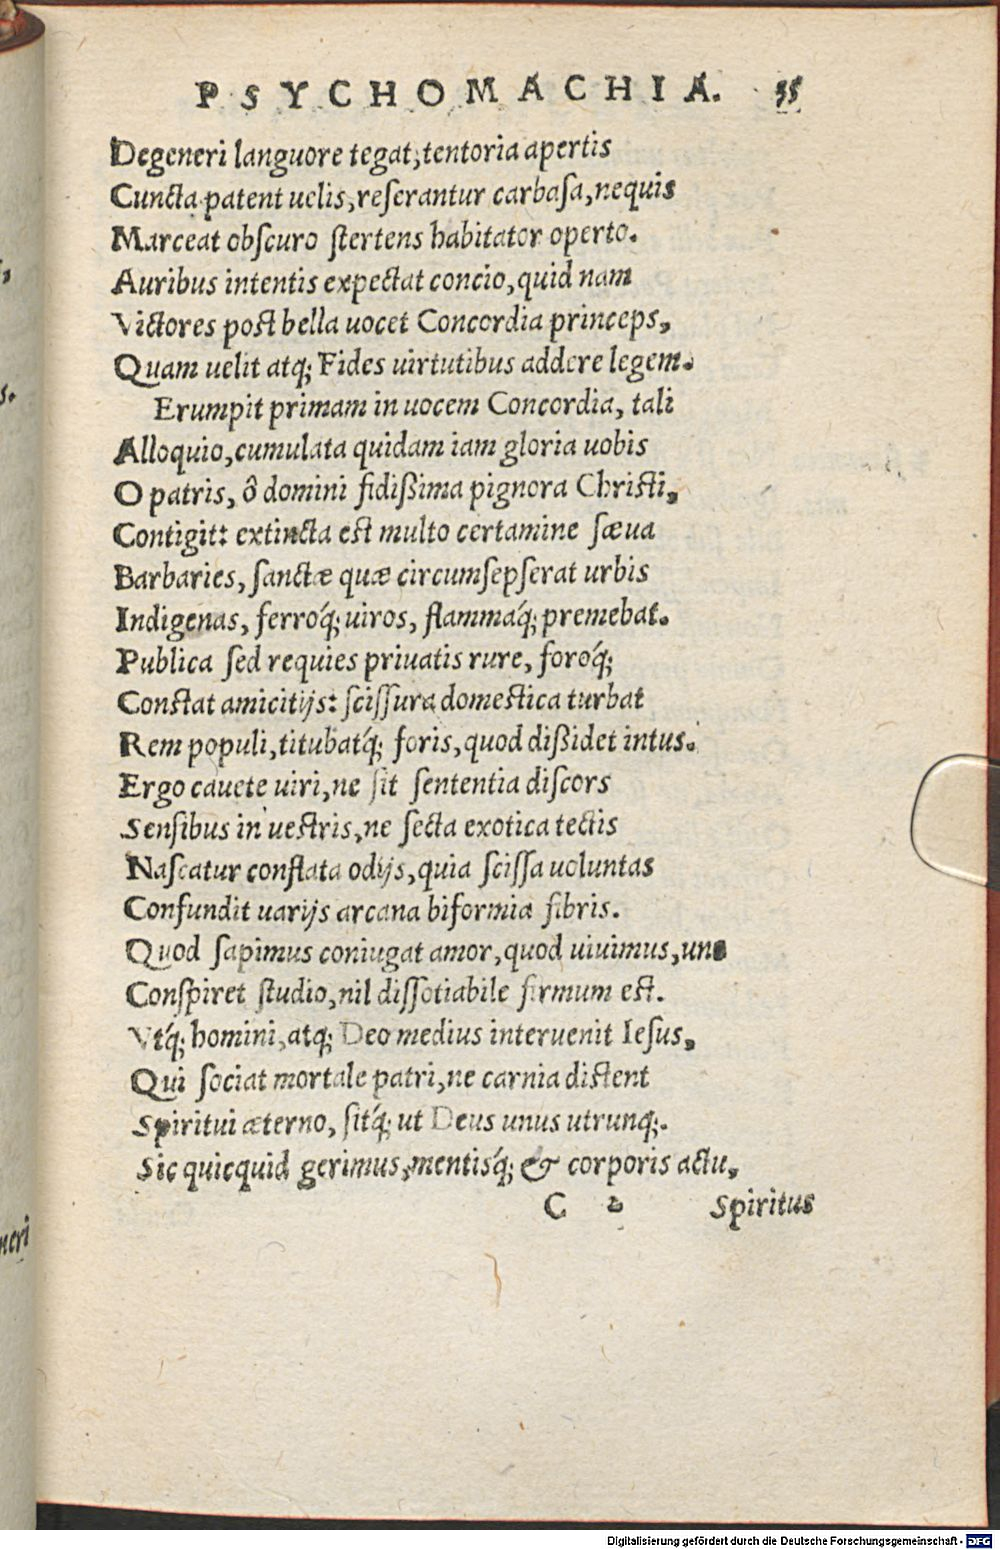 PSYCHOMACHIA. 35
Degeneri languore tegat, tentoria apertis
Cuncta patent uelis, reſerantur carbaſa, nequis
Marceat obſcuro ſtertens habitator operto.
Auribus intentis expectat concio, quid nam
Victores poſt bella uocet Concordia princeps,
Quam uelit atq; Fides uirtutibus addere legem.
Erumpit primam in uocem Concordia, tali
Alloquio, cumulata quidam iam gloria uobis
O patris, ô domini fidißima pignora Chriſti,
Contigit: extincta eſt multo certamine ſæua
Barbaries, ſanctæ quæ circumſepſerat urbis
Indigenas, ferroq́; uiros, flammaq́; premebat.
Publica ſed requies priuatis rure, foroq́;
Conſtat amicitijs: ſciſſura domeſtica turbat
Rem populi, titubatq́; foris, quod dißidet intus.
Ergo cauete uiri, ne ſit ſententia diſcors
Senſibus in ueſtris, ne ſecta exotica tectis
Naſcatur conflata odijs, quia ſciſſa uoluntas
Confundit uarijs arcana biformia fibris.
Quod ſapimus coniugat amor, quod uiuimus, uno
Conſpiret ſtudio, nil diſſotiabile firmum eſt.
Vtq́; homini, atq; Deo medius interuenit Ieſus,
Qui ſociat mortale patri, ne carnia diſtent
Spiritui æterno, ſitq́; ut Deus unus utrunq;.
Sic quicquid gerimus, mentisq́; & corporis actu,
C 2 Spiritus
neri
Digitalisierung gefördert durch die Deutsche Forschungsgemeinschaft - DFG